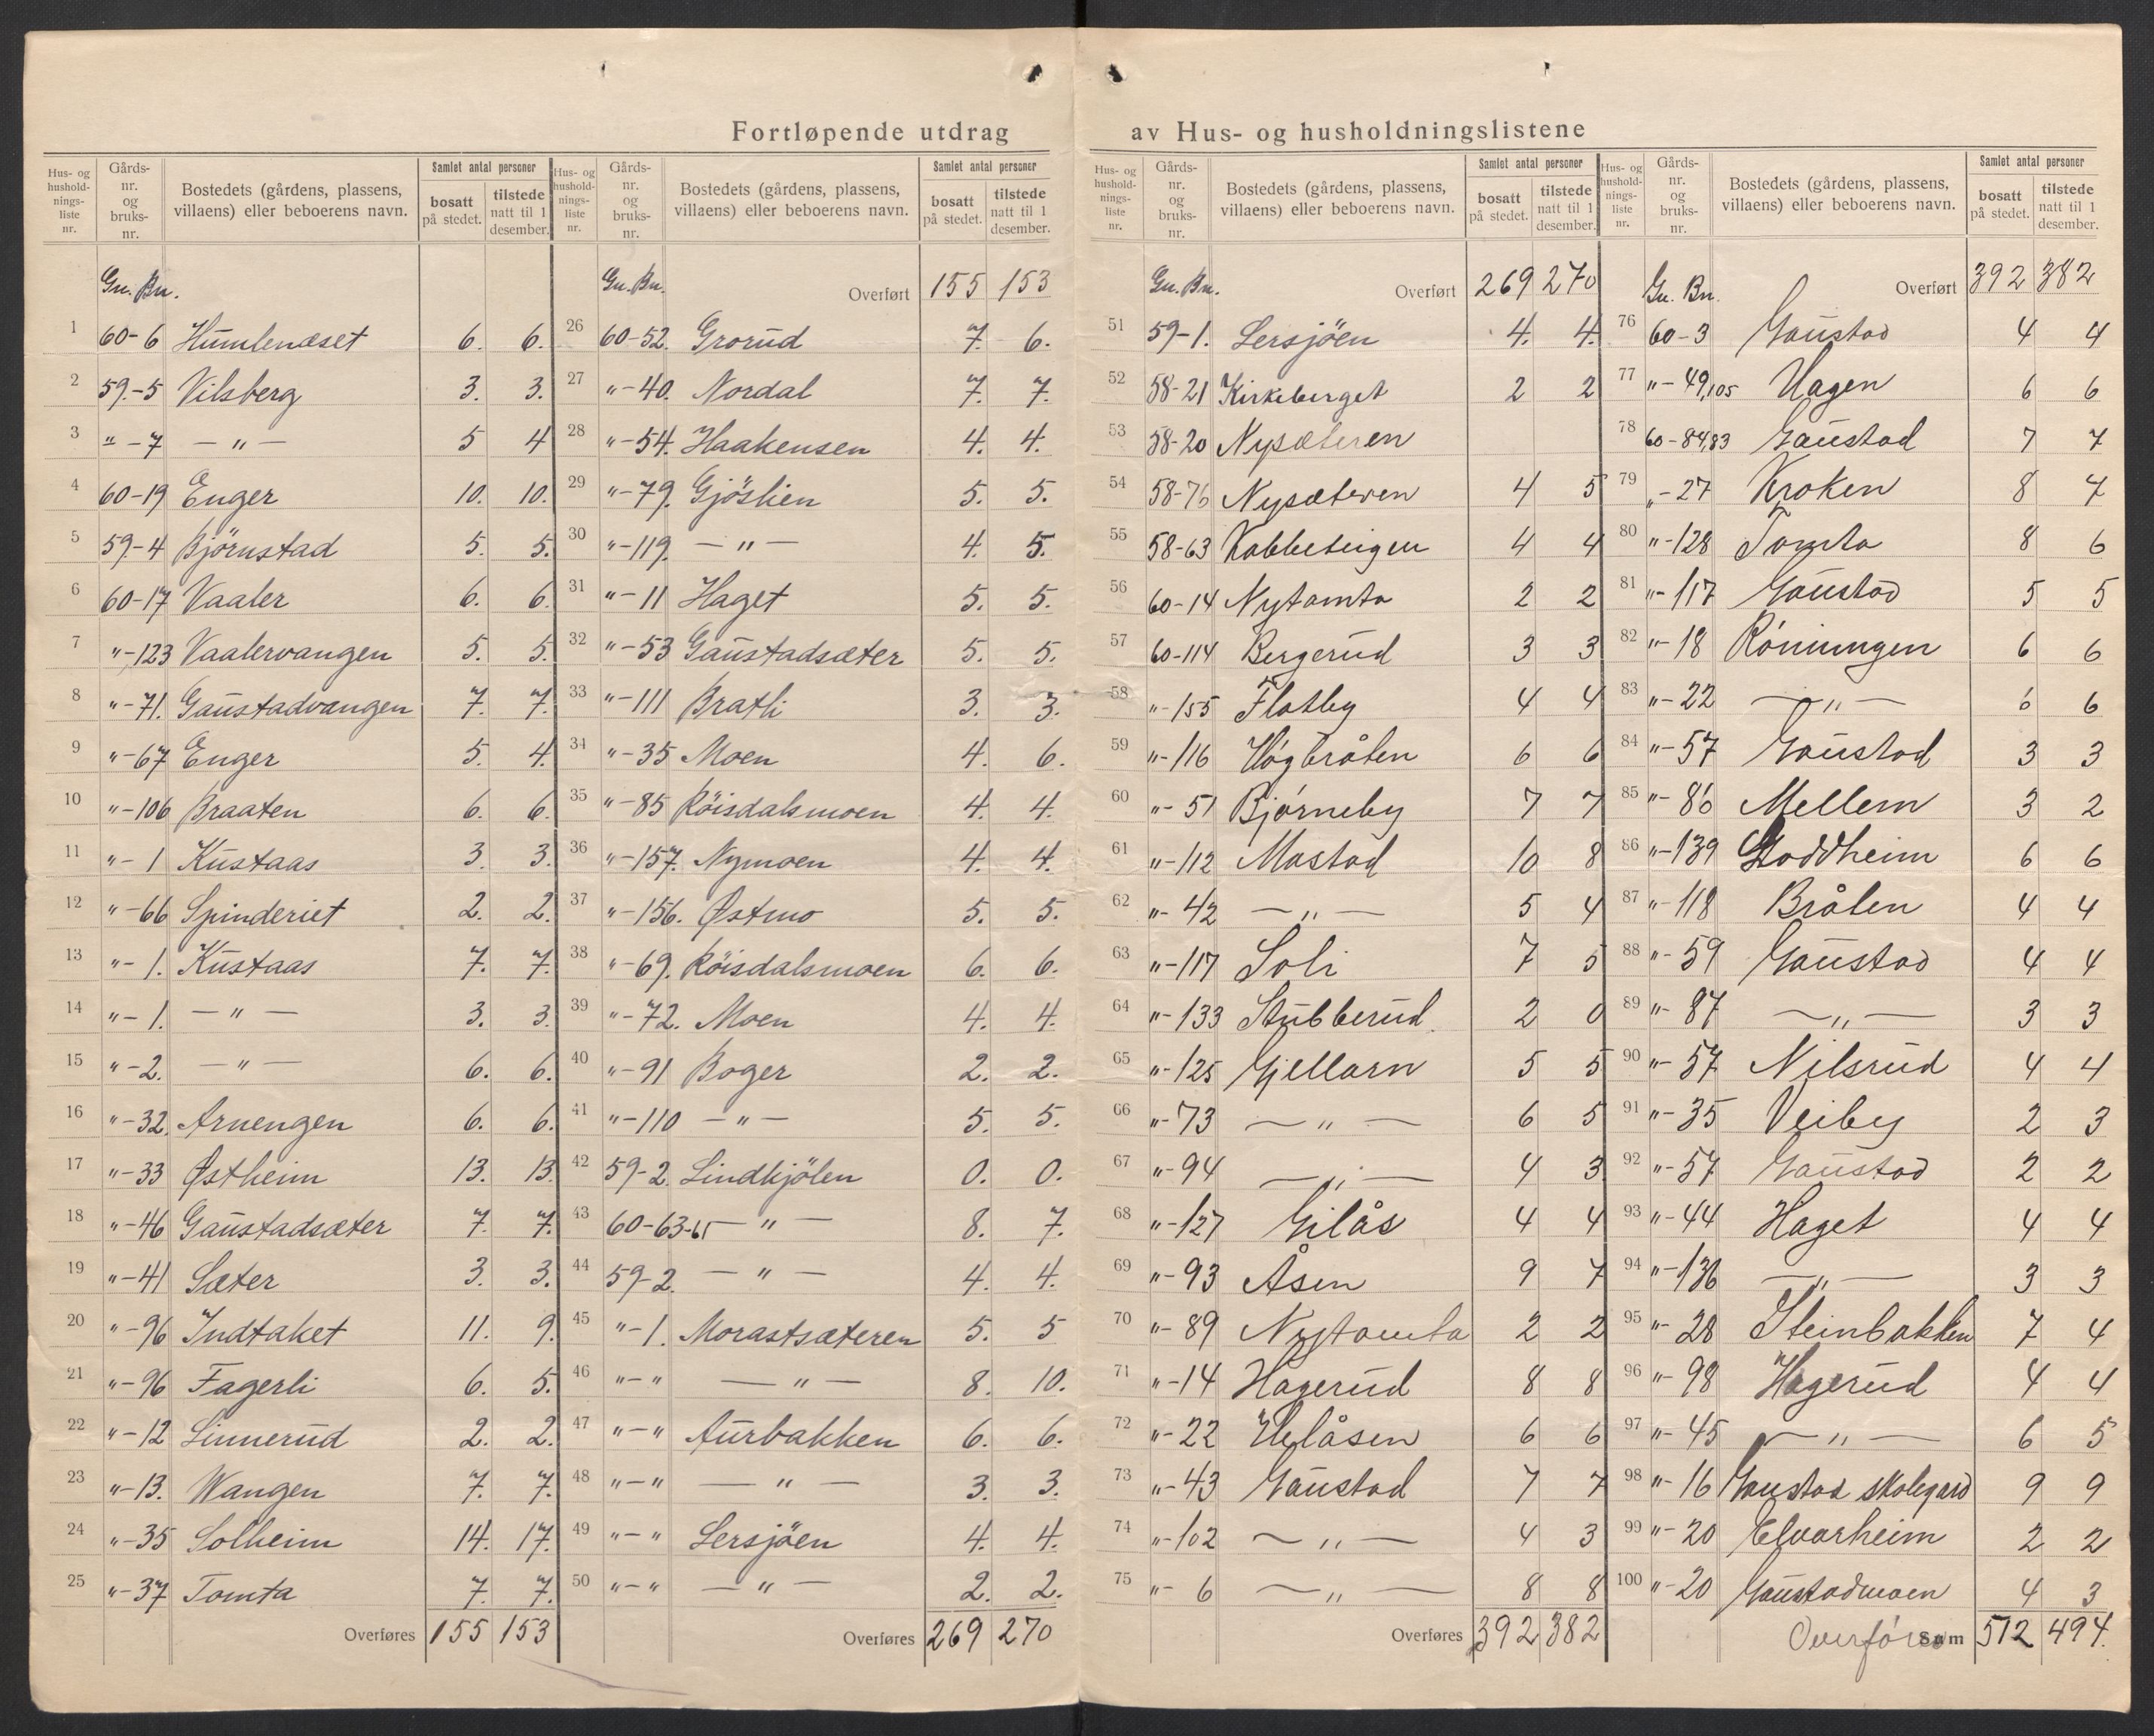 Fortløpende utdrag av Hus- og husholdningslistene
Hus- og hushold-nings-liste nr. | Gårds-nr. og bruks-nr. | Bostedets (gårdens, plassens, villaens) eller beboerens navn. | Samlet antal personer | bosatt på stedet. | tilstede natt til 1 desember.
Gn. Bn.
1 60-6 Humlenæset 6. 6.
2 59-5 Vilsberg 3. 3.
3 "-7 — " — 5 4
4 60-19 Enger 10. 10.
5 59-4 Björnstad 5. 5.
6 60-17 Vaaler 6. 6
7 "-123 Vaalervangen 5. 5.
8 "-71. Gaustadvangen 7. 7.
9 "-67 Enger 5. 4.
10 "-106 Braaten 6. 6.
11 "-1 Kustaas 3. 3.
12 "-66 Spinderiet 2. 2.
13 "-1. Kustaas 7. 7.
14 "-1. — " — 3. 3.
15 "-2. — " — 6. 6.
16 "-32. Arnengen 6. 6.
17 "-33 Østheim 13. 13.
18 "-46 Gaustadsæter 7. 7.
19 "-41 Sæter 3. 3.
20 "-96 Indtaket 11. 9.
21 "-96 Fagerli 6. 5.
22 "-12 Linnerud 2. 2.
23 "-13. Wangen 7. 7.
24 "-35 Solheim 14. 17.
25 "-37 Tomta 7. 7.
Overføres 155 153
Hus- og hushold-nings-liste nr. | Gårds-nr. og bruks-nr. | Bostedets (gårdens, plassens, villaens) eller beboerens navn. | Samlet antal personer | bosatt på stedet. | tilstede natt til 1 desember.
Gn. Bn. Overført 155 153
26 60-52. Grorud 7. 6.
27 "-40. Nordal 7. 7.
28 "-54. Haakensen 4. 4.
29 "-79. Gjöslien 5. 5.
30 "-119. — " — 4. 5.
31 "-11 Haget 5. 5.
32 "-53 Gaustadsæter 5. 5.
33 "-111 Bratli 3. 3.
34 "-35 Moen 4. 6.
35 "-85 Röisdalsmoen 4. 4.
36 "-157. Nymoen 4. 4.
37 "-156. Østmo 5. 5.
38 "-69. Röisdalsmoen 6. 6.
39 "-72. Moen 4. 4.
40 "-91 Boger 2. 2.
41 "-110 — " — 5. 5.
42 59-2. Lindkjölen 0. 0.
43 60-63-65 — " — 8. 7.
44 59-2. — " — 4. 4.
45 "-1. Morastsæteren 5. 5
46 "-" — " — 8. 10.
47 "-" Aurbakken 6. 6.
48 "-" — " — 3. 3.
49 "-" Lersjöen 4. 4.
50 "-" — " — 2. 2.
Overføres 269 270
Hus- og hushold-nings-liste nr. | Gårds-nr. og bruks-nr. | Bostedets (gårdens, plassens, villaens) eller beboerens navn. | Samlet antal personer | bosatt på stedet. | tilstede natt til 1 desember.
Gn. Bn. Overført 269 270
51 59-1. Lersjöen 4. 4.
52 58-21 Kirkeberget 2 2
53 58-20 Nysæteren
54 58-76 Nysæteren 4 5
55 58-63 Kabbeteigen 4 4
56 60-14 Nytomta 2 2
57 60-114 Bergerud 3 3
58 "-155 Flatby 4 4
59 "-116 Høgbråten 6 6
60 "-51 Bjørneby 7 7
61 "-112 Mostad 10 8
62 "-42 — " — 5 4
63 "-117 Soli 7 5
64 "-133 Stubberud. 2 0
65 "-125 Gjellarn 5 5
66 "-73 — " — 6 5
67 "-94 — " — 4 3
68 "-127 Gilås 4 4
69 "-93 Åsen 9 7
70 "-89 Nytomta 2 2
71 "-14 Hagerud 8 8
72 "-22 Ulvåsen 6 6
73 "-43 Gaustad 7 7
74 "-102 — " — 4 3
75 "-6 — " — 8 8
Overføres 392 382
Hus- og hushold-nings-liste nr. | Gårds-nr. og bruks-nr. | Bostedets (gårdens, plassens, villaens) eller beboerens navn. | Samlet antal personer | bosatt på stedet. | tilstede natt til 1 desember.
Gn. Bn. Overført 392 382
76 60-3 Gaustad 4 4
77 "-49,105 Hagen 6 6
78 60-84,83 Gaustad 7 7
79 "-27 Kroken 8 7
80 "-128 Tomta 8 6
81 "-117 Gaustad 5 5
82 "-18 Rønningen 6 6
83 "-22 — " — 6 6
84 "-57 Gaustad 3 3
85 "-86 Mellem 3 2
86 "-139 Stoddheim 6 6
87 "-118 Bråten 4 4
88 "-59 Gaustad 4 4
89 "-87 — " — 3 3
90 "-57 Nilsrud 4 4
91 "-35 Veiby 2 3
92 "-57 Gaustad 2 2
93 "-44 Haget 4 4
94 "-136 — " — 3 3
95 "-28 Steinbakken 7 4
96 "-98 Hagerud 4 4
97 "-45 — " — 6 5
98 "-16 Gaustad skolegard 9 9
99 "-20 Elvarheim 2 2
100 "-20 Gaustadmoen 4 3
Overføres Sum 512 494.